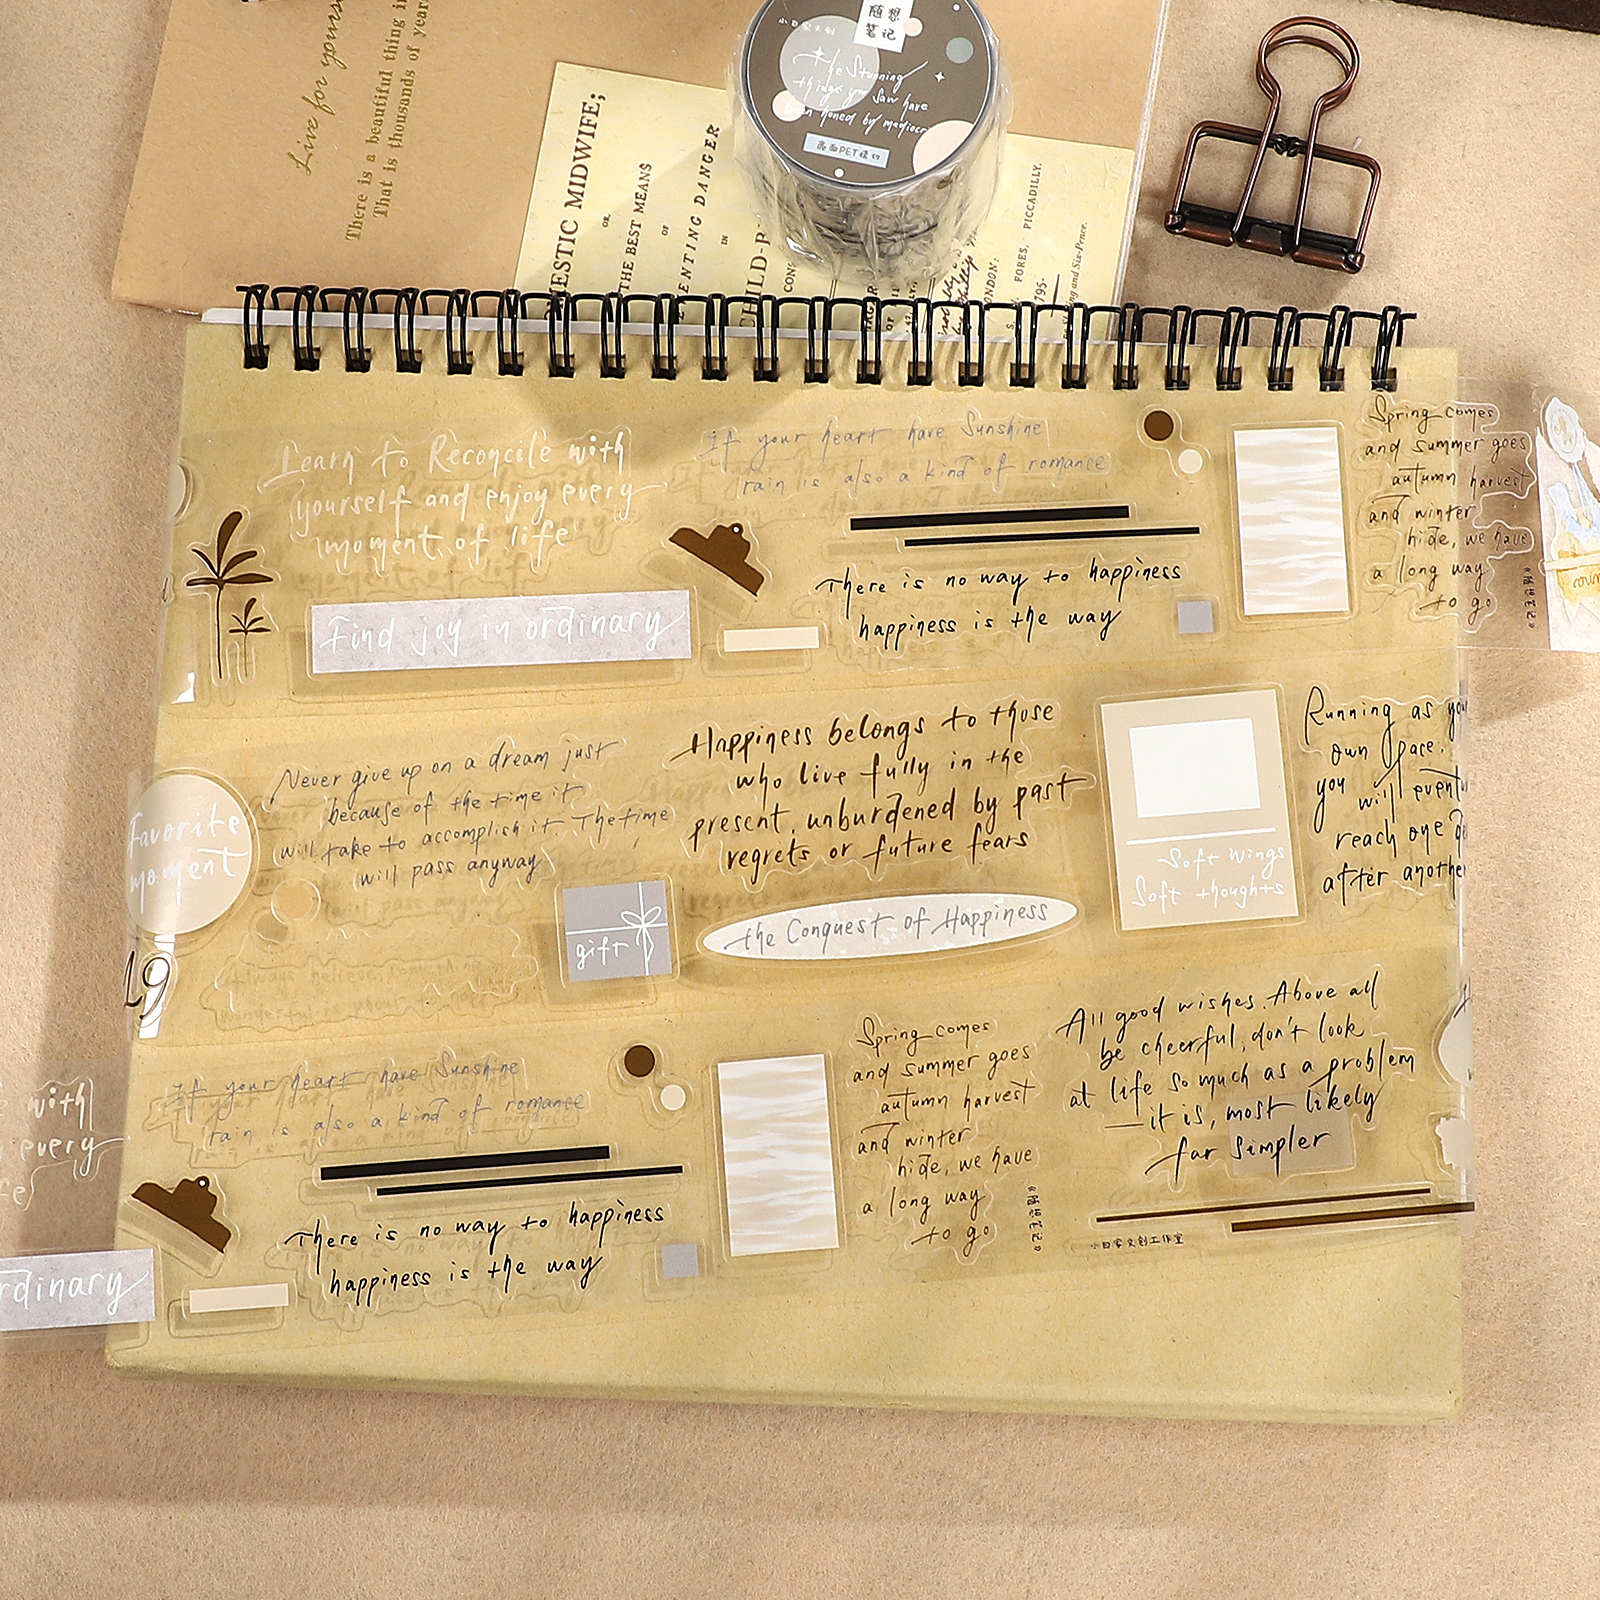 Live for yourse
There is a beautiful thing in
That is thousands of years
MESTIC MIDWIFE;
OR,
THE BEST MEANS
OF
ENTING DANGER
IN
CHILD-
CON
OF
LONDON:
S. FORES, PICCADILLY.
795.
and Six-Pence.
随想
笔记
The Stunning
things you saw have
been honed by mediocri
亮面PET模切
Learn to Reconcile with
yourself and enjoy every
moment of life
Find joy in ordinary
If your heart have Sunshine
rain is also a kind of romance
There is no way to happiness
happiness is the way
Spring comes
and summer goes
autumn harvest
and winter
hide, we have
a long way
to go
《随想笔记》
Favorite
moment
19
Never give up on a dream just
because of the time it
will take to accomplish it. The time
will pass anyway
gift
Happiness belongs to those
who live fully in the
present, unburdened by past
regrets or future fears
the Conquest of Happiness
Soft wings
Soft thoughts
Running as you
own pace.
you will event
reach one de
after anothe
with
every
fe
rdinary
If your heart have Sunshine
rain is also a kind of romance
There is no way to happiness
happiness is the way
Spring comes
and summer goes
autumn harvest
and winter
hide, we have
a long way
to go
《随想笔记》
All good wishes. Above all
be cheerful, don't look
at life so much as a problem
—it is, most likely
far simpler
小日常文创工作室